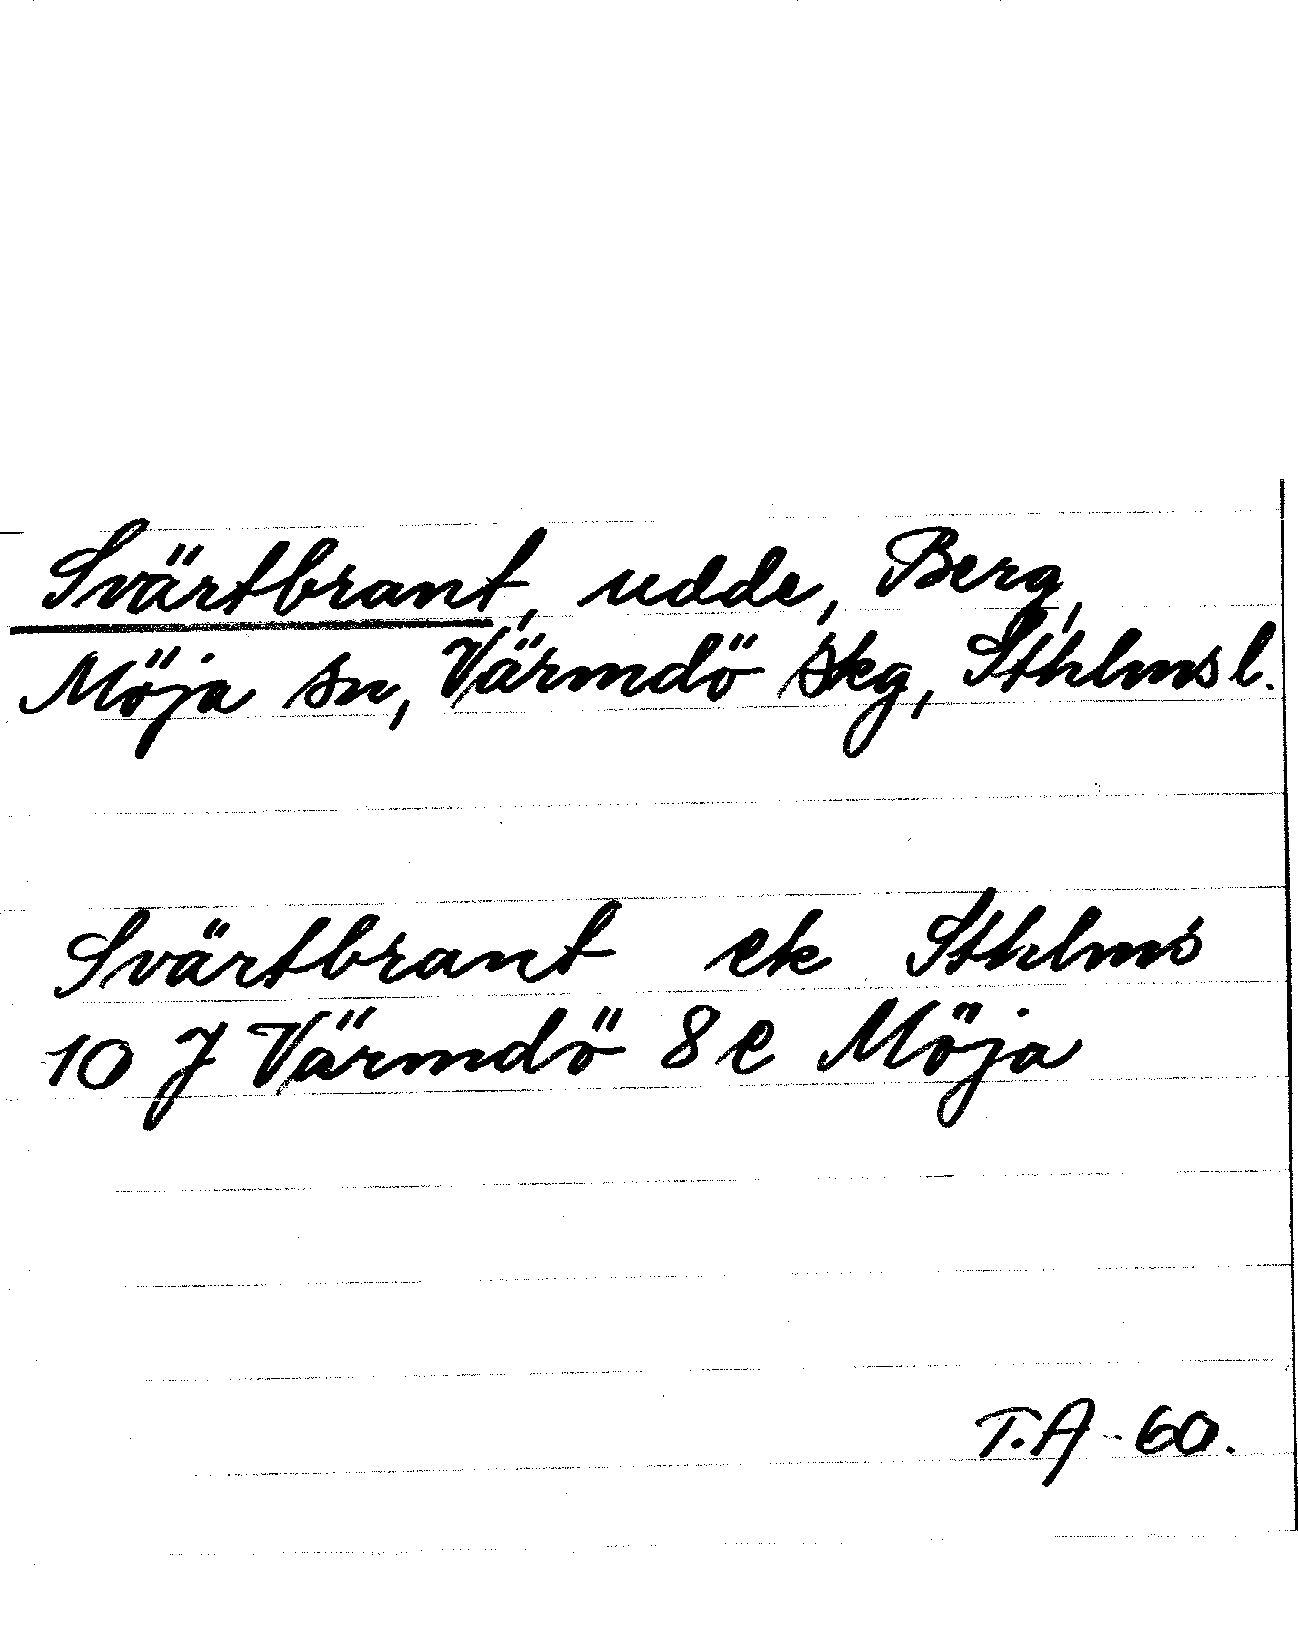 Svärtbrant, udde, Berg,
Möja sn, Värmdö skg, Sthlms l.
Svärtbrant ek Sthlms
10 J Värmdö 8 e Möja
T.A - 60.